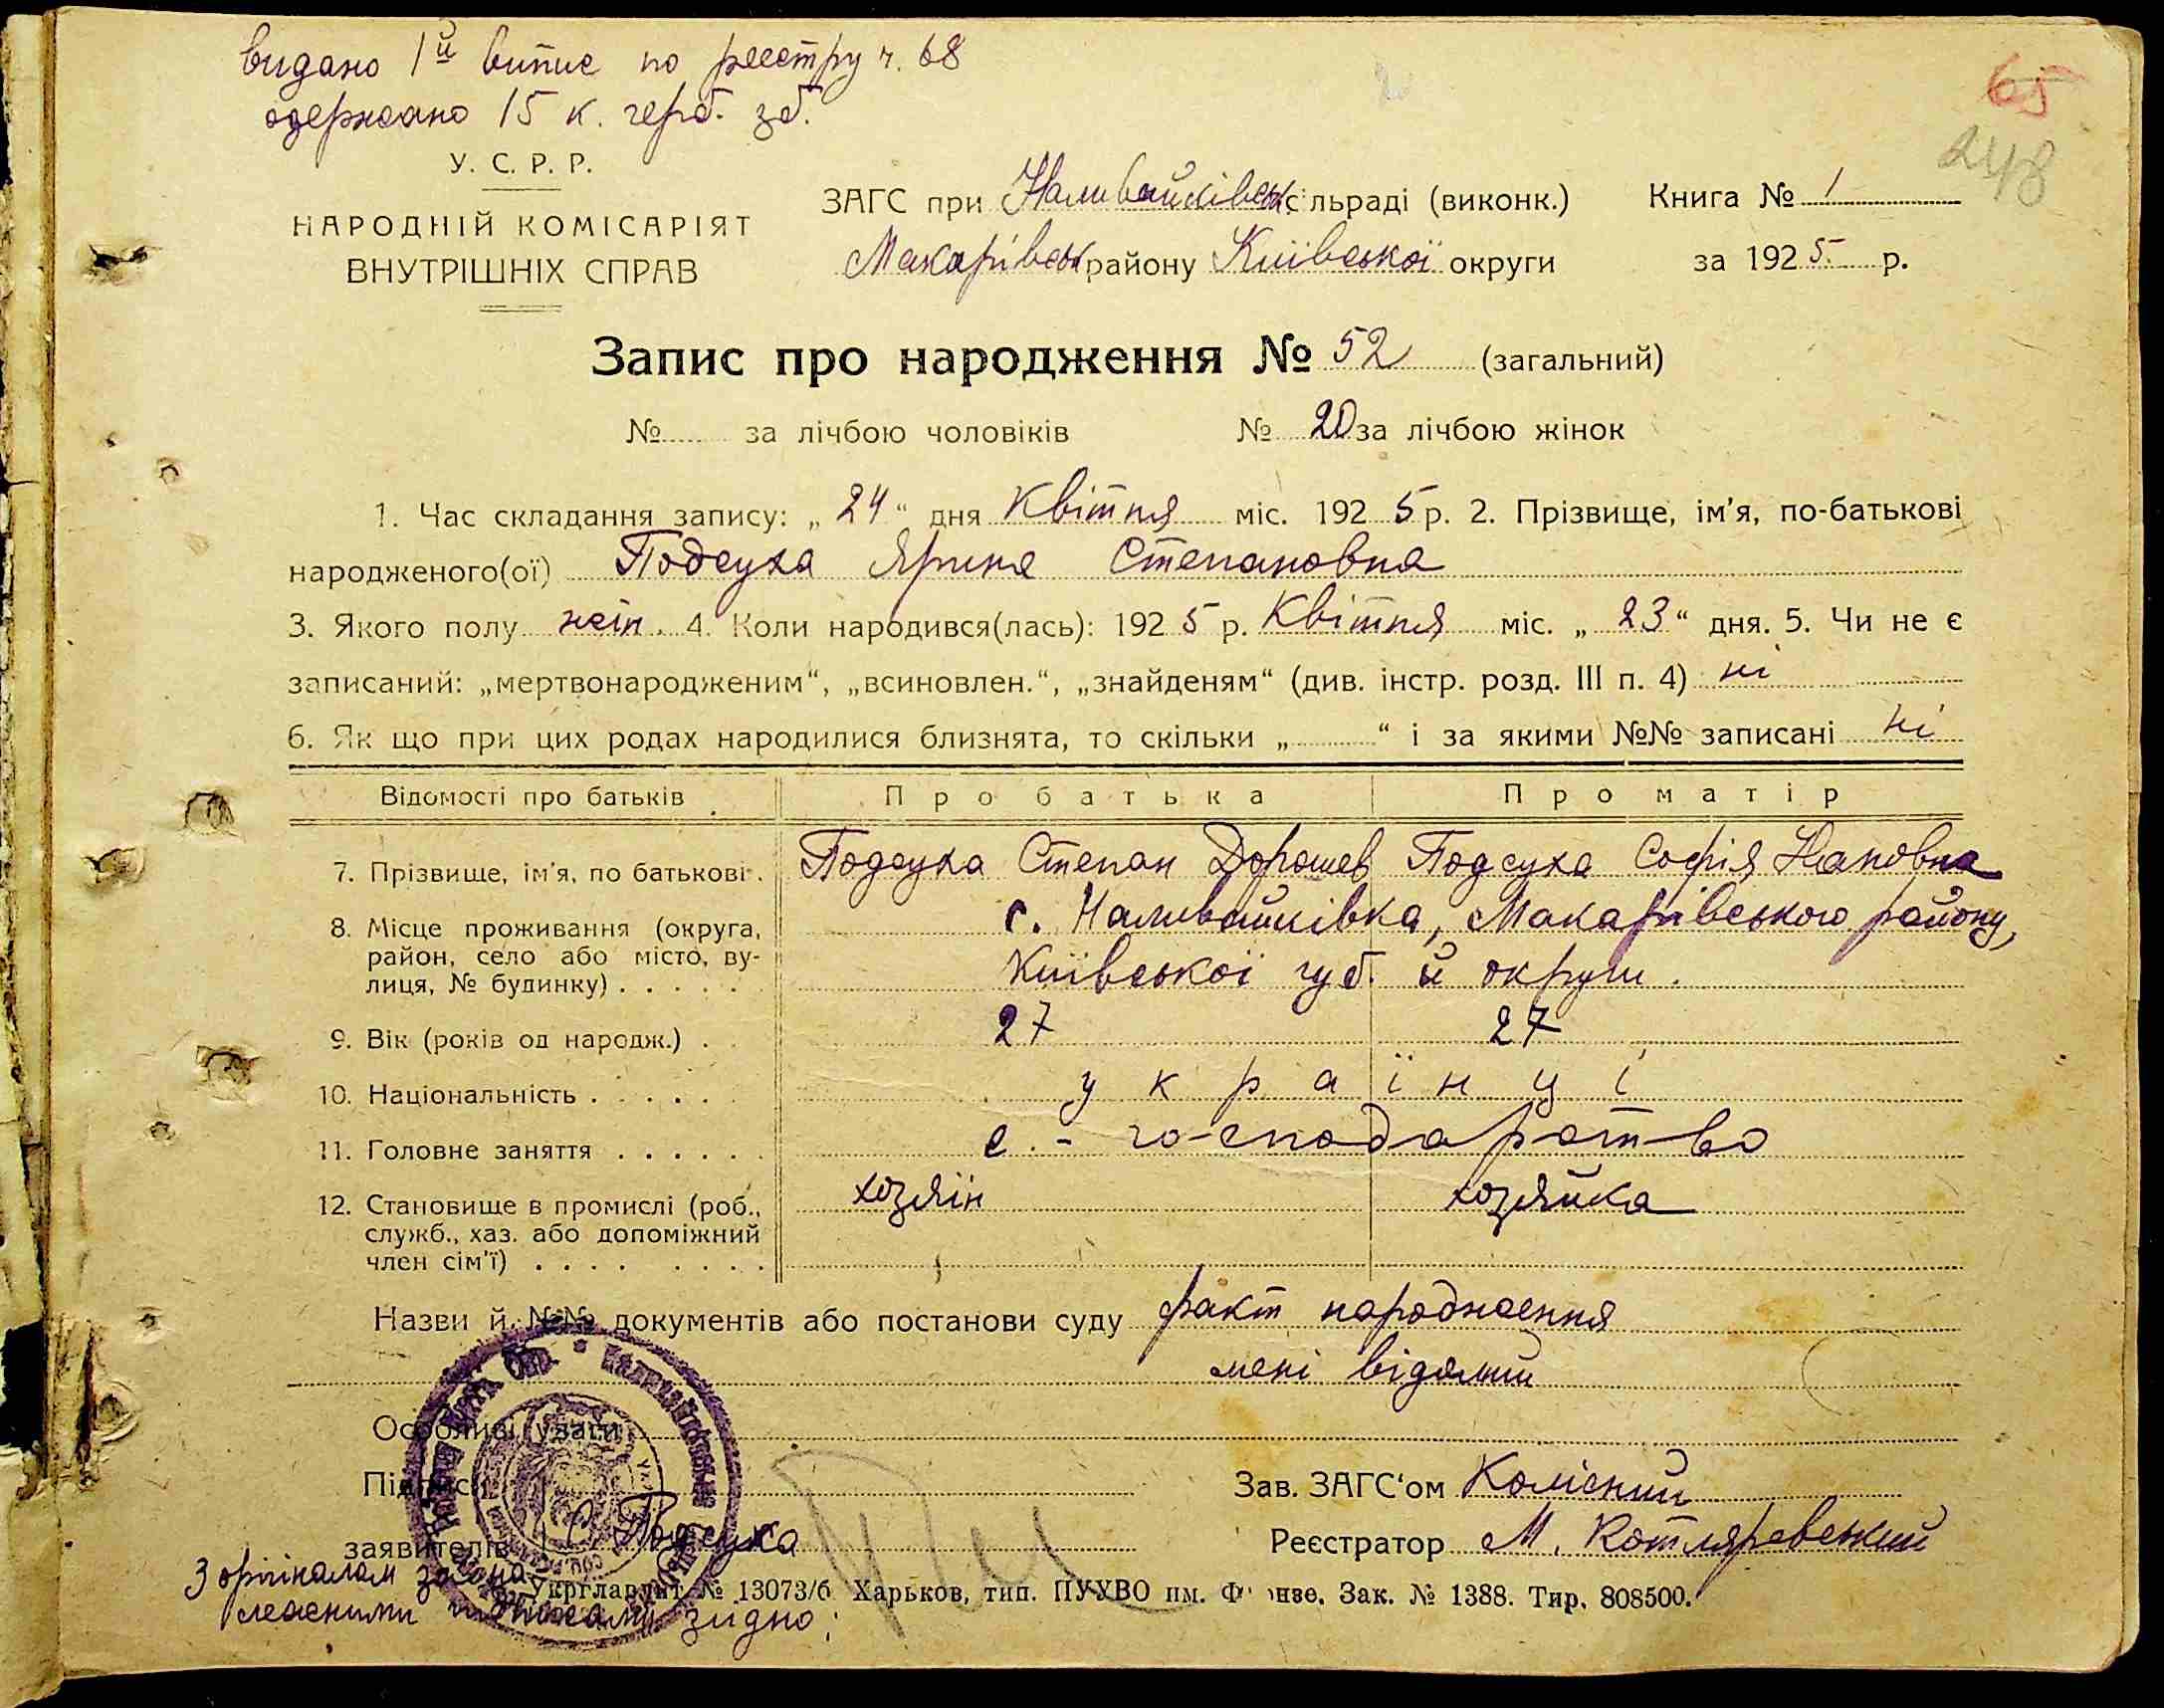 видано 1й випис по реєстру ч. 68
одержано 15 к. герб. зб.
65
248
У. С. Р. Р.
НАРОДНІЙ КОМІСАРІЯТ
ВНУТРІШНІХ СПРАВ
ЗАГС при Наливайківськ. сільраді (виконк.) Книга № 1
Макарівськ району Київської округи за 1925 р.
Запис про народження № 52 (загальний)
№ за лічбою чоловіків № 20 за лічбою жінок
1. Час складання запису: „24“ дня Квітня міс. 1925 р. 2. Прізвище, ім’я, по-батькові
народженого(ої) Подсуха Ярина Степановна
3. Якого полу жін. 4. Коли народився(лась): 1925 р. Квітня міс. „23“ дня. 5. Чи не є
записаний: „мертвонародженим“, „всиновлен.“, „знайденям“ (див. інстр. розд. III п. 4) ні
6. Як що при цих родах народилися близнята, то скільки „ “ і за якими №№ записані ні
Відомості про батьків Про батька Про матір
7. Прізвище, ім’я, по батькові. Подсуха Степан Дорошев Подсуха Софія
8. Місце проживання (округа, с. Наливайківка, Макарівського району,
район, село або місто, ву-
лиця, № будинку) . . . . . Київської губ. й округи.
9. Вік (років од народж.) . . 27 27
10. Національність . . . . . українці
11. Головне заняття . . . . . . с. - господарство
12. Становище в промислі (роб., хозяін хозяйка
служб., хаз. або допоміжний
член сім’ї) . . . . . . . .
Назви й №№ документів або постанови суду факт народження
мені відомий
Особливі уваги
Підписи Зав. ЗАГС‘ом Колісний
заявителів С. Подсуха Реєстратор М. Котляревский
З орігіналом
Укрглавліт № 13073/б Харьков, тип. ПУУВО им. Фрунзе. Зак. № 1388. Тир. 808500.
зідно: